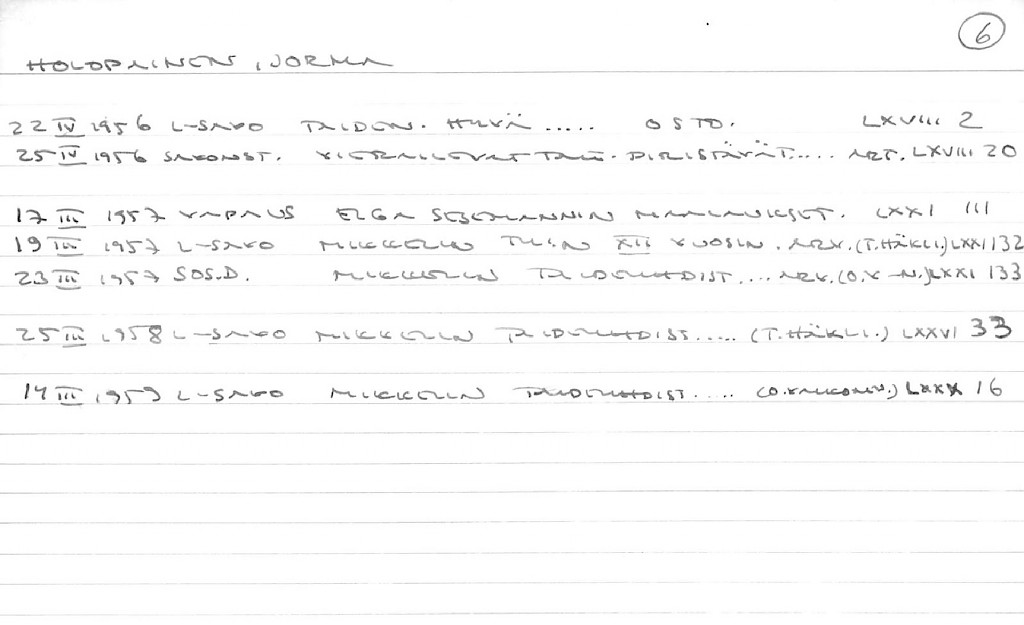 6
HOLOPAINEN, JORMA
22 IV 1956 L-SAVO TAIDEN. HYVÄ ..... OSTO. LXVIII 2
25 IV 1956 SAVONST. VIERAILEVAT TAIT. PIRISTÄVÄT..... ART. LXVIII 20
17 III 1957 VAPAUS ELGA SESEMANNIN MAALAUKSET. LXXI 111
19 III 1957 L-SAVO MIKKELIN TY:N XII VUOSIN. ARV. (T.HÄKLI.) LXXI 132
23 III 1957 SOS.D. MIKKELIN TAIDEYHDIST.... ARV. (O.V-N.) LXXI 133
25 III 1958 L-SAVO MIKKELIN TAIDEYHDIST..... (T.HÄKLI.) LXXVI 33
14 III 1959 L-SAVO MIKKELIN TAIDEYHDIST..... LXXX 16